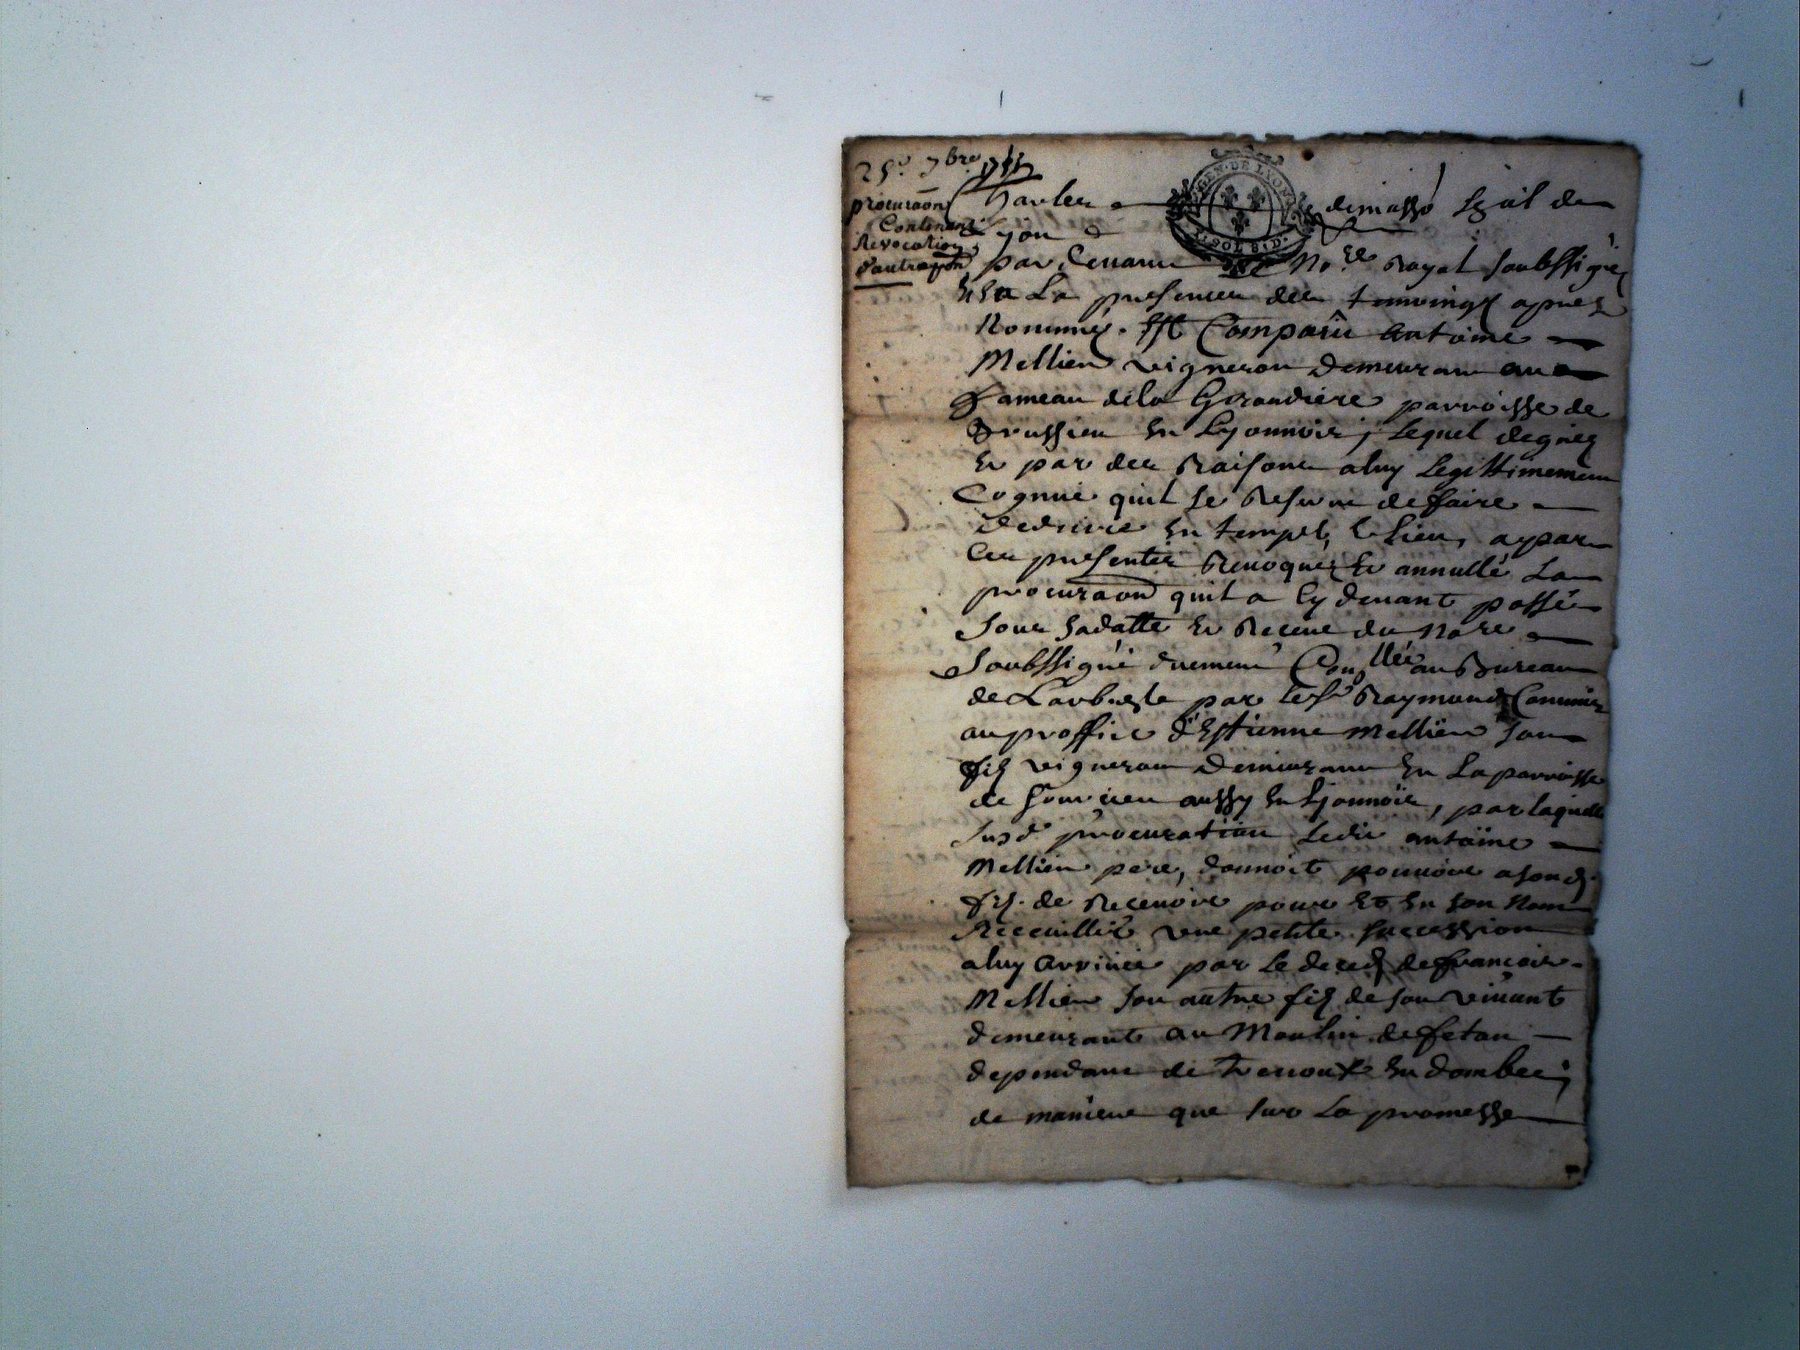 25e 7bre
procuraon
Contenant
Revocation
d'autre
GEN. DE LYON
SOL 8. D.
Charles demasso
Lyon
par devant le No.re Royal soubssigné
Et en La presence des temoings apres
Nommés. Est Comparu Antoine
Mellien vigneron demeurant au
hameau de la Giraudiere parroisse de
Brussieu en Lyonnois, Lequel de gré
Et par des Raisons a luy Legittimement
Cognue quil se Reserve de faire
deduire En temps, & lieu, a par
Ces presentes Revoqué Et annullé La
procuraon quil a Cy devant passée
Sous sa datte Et Receue du No.re
Soubssigné duement Conllée au Bureau
de Larbresle par le Sr Raymond Commis
au proffit d'Estienne Mellien son
fils vigneron demeurant En La parroisse
de Sourcieu aussy En Lyonnois, par laquelle
Susd. procuration Ledit antoine
Mellien pere, donnoit pouvoir a sond.
fils. de Recevoir pour Et En son Nom
Recevillir une petite succession
a luy arrivée par Le deceds de francois
Mellien son autre fils de son vivant
demeurant au Moulin de fetan
dependant de Trevoux En dombes;
de maniere que sur La promesse